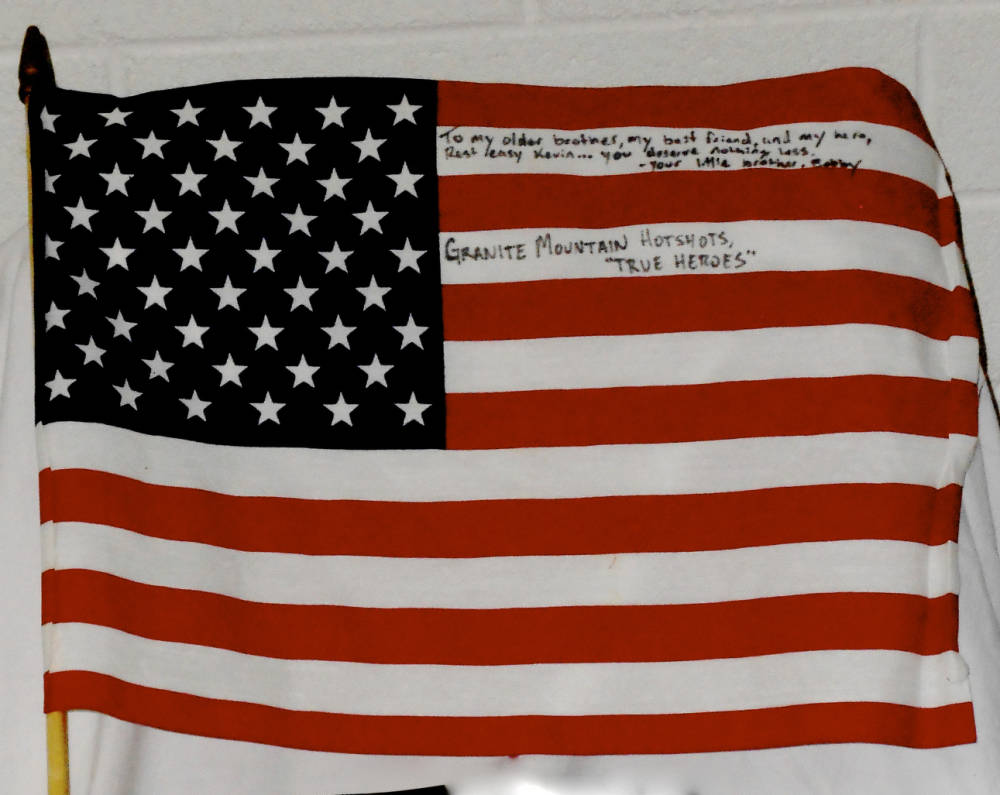 To my older brother, my best friend, and my hero,
Rest easy Kevin... you deserve nothing less.
- Your little brother, Robby
GRANITE MOUNTAIN HOTSHOTS,
"TRUE HEROES"